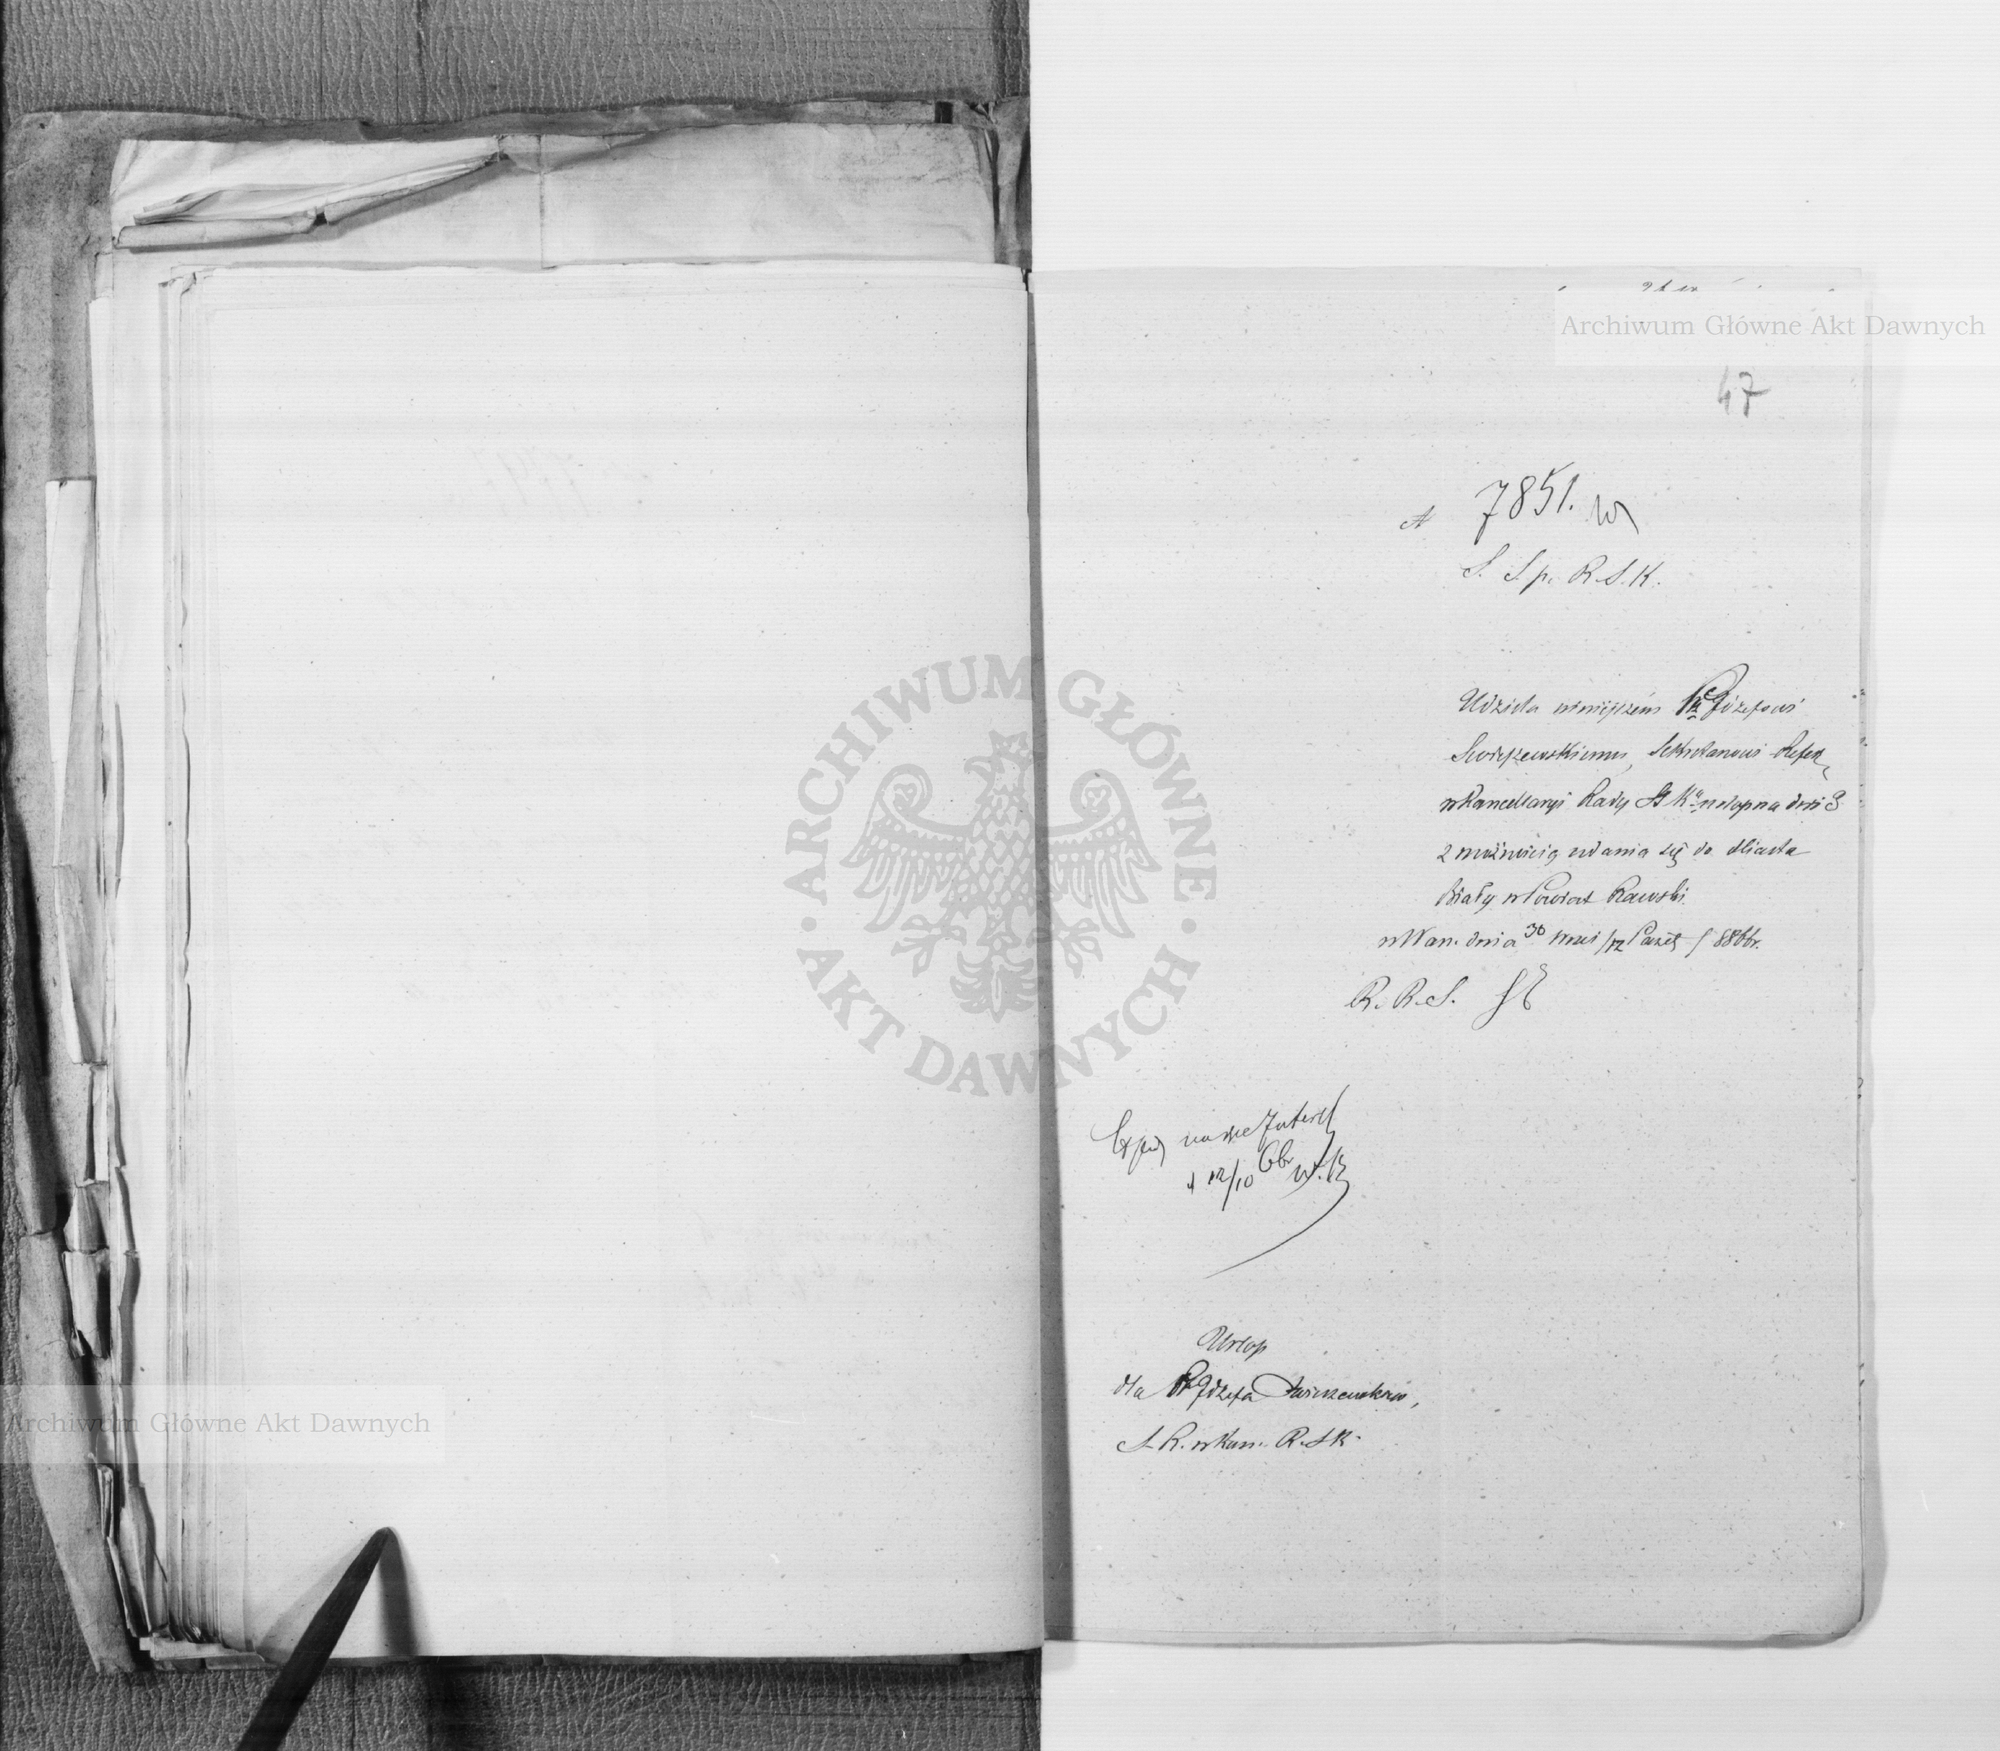 Archiwum Główne Akt Dawnych
47
N 7851. W
S. S. p. R. S. K.
Udziela niniejszém Józefowi
Sekretarzowi Refer
w Kancellaryi Rady St Ku urlop na dni 8
z możnością udania się do Miasta
Biały w Powiat Rawski.
w War. dnia 30 Wrześ/12 Paźdz 1866 r.
R. R. S.
12/10 66
Urlop
dla Józefa
S. R. w Kan. R. S. K.
ARCHIWUM GŁÓWNE
AKT DAWNYCH
Archiwum Główne Akt Dawnych